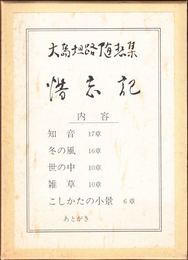 大島坦路随想集
備忘記
内容
知音 17章
冬の風 16章
世の中 10章
雑草 10章
こしかたの小景 6章
あとがき